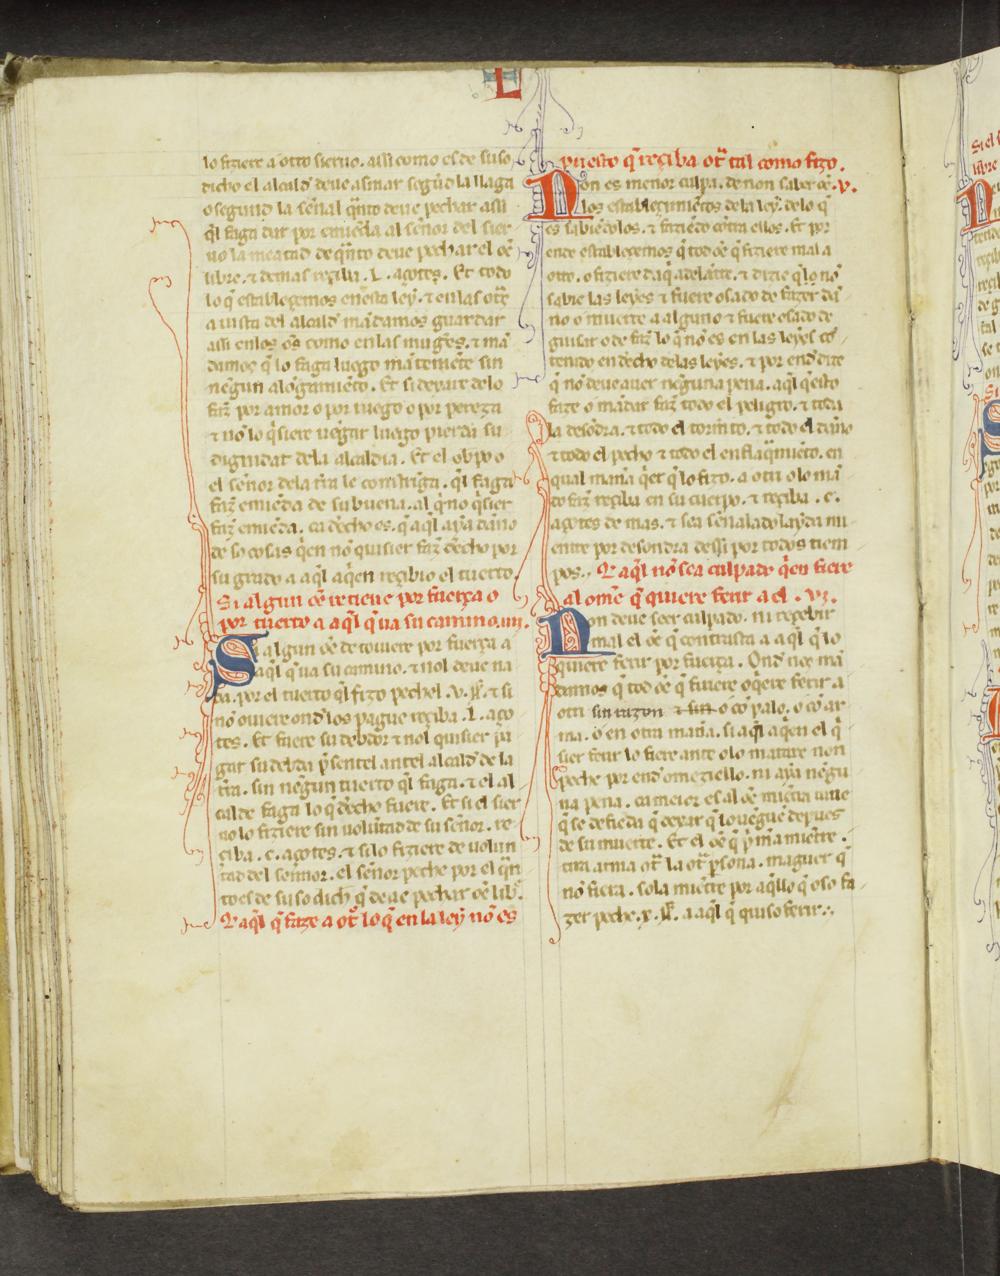 L
lo fiziere a otro sieruo. assi como es de suso
dicho el alcalde deue asmar segũd la llaga
o segund la señal q̃nto deue pechar assi
q̃l faga dar por emiẽda al señor del sier
uo la meatad de q̃nto deue pechar el oẽ
libre. ⁊ demas reçiba .L. açotes. Et todo
lo q̃ estableçemos en esta ley. ⁊ en las otr̃s
a uista del alcald mãdamos guardar
assi en los oẽs como en las mugr̃es. ⁊ mã
damos q̃ lo faga luego mãteniẽte sin
nengun alongamiẽto. Et si dexare delo
faz̃ por amor o por ruego o por pereza
⁊ nõ lo q̃siere uẽgar luego pierda su
dignidat dela alcaldia. Et el obp̃o o
el señor dela tr̃ra le constriga. q̃l faga
faz̃ emiẽda de su buena. al q̃ no q̃sier
faz̃ emiẽda. ca dr̃cho es. q̃ aq̃l aya daño
de so cosas q̃en nõ quisier faz̃ dr̃echo por
su grado a aq̃l aq̃en reçibio el tuerto.
Si algun oẽ retiene por fuerça o
por tuerto a aq̃l q̃ ua su camino. iiij.
Si algun oẽ detouiere por fuerça a
aq̃l q̃ ua su camino. ⁊ nol deue na
da. por el tuerto q̃l fizo pechel .v. ss̃. ⁊ si
nõ ouiere ond los pague reçiba .L. aço
tes. Et si fuere su debdor ⁊ nol quisier pa
gar su debda p̃sentel antel alcalde de la
tr̃ra. sin nengun tuerto q̃l faga. ⁊ el al
calde faga lo q̃ dr̃echo fuere. Et si el sier
uo lo fiziere sin voluntad de su señor. re
çiba .c. açotes. ⁊ si lo fiziere de volun
tad del sennor. el señor peche por el q̃n
to es de suso dich q̃ deue pechar oẽ lib̃.
Q̃ aq̃l q̃ faze a otr̃ lo q̃ en la ley nõ es
puesto q̃ reçiba otr̃ tal como fizo.
Non es menor culpa. de non saber oẽ .v.
los establezimiẽtos dela ley. delo q̃
es sabiẽdolos. ⁊ faziẽdo cõtra ellos. Et por
ende establesçemos q̃ tod oẽ q̃ fiziere mal a
otro. o fiziere daq̃ adelãte. ⁊ dizie q̃ lo nõ
sabie las leyes ⁊ fuere osado de fazer dã
no o muerte a alguno ⁊ fuere osado de
guisar o de faz̃ lo q̃ nõ es en las leyes cõ
tenido en dr̃echo delas leyes. ⁊ por end dize
q̃ nõ deue auer nẽguna pena. aq̃l q̃ esto
faze o mãdar faz̃ todo el peligro. ⁊ toda
la desõdra. ⁊ todo el tormẽto. ⁊ todo el daño
⁊ todo el pecho ⁊ todo el enflaq̃miẽto. en
qual manã q̃er q̃ lo fizo. a otri o lo mã
do faz̃ reçiba en su cuerpo. ⁊ reçiba .c.
açotes de mas. ⁊ sea señalado laydamĩ
entre por desondra dessi por todos tiem
pos. Q̃ aq̃l nõ sea culpado q̃en fiere
al ome q̃ quiere ferir a el. vj.
Non deue seer culpado. ni reçebir
mal el oẽ q̃ contrasta a aq̃l q̃ lo
quiere ferir por fuerça. Ond nos mã
damos q̃ tod oẽ q̃ firiere o q̃ere ferir a
otri sin razon ⁊ sin o cõ palo. o cõ ar
ma. o en otra manã. si aq̃l aq̃en el q̃
sier ferir lo fiere ante o lo matare non
peche por end omeziello. ni aya nẽgu
na pena. ca meior es al oẽ miẽtra uiue
q̃ se defiẽda q̃ dexar q̃ lo uẽgue depues
de su muerte. Et el oẽ q̃ p̃mamiẽtre
tira arma otr̃ la otr̃ p̃sona. maguer q̃
nõ fiera. sola miẽtre por aq̃llo q̃ oso fa
zer peche .x. ss̃. a aq̃l q̃ quiso ferir.